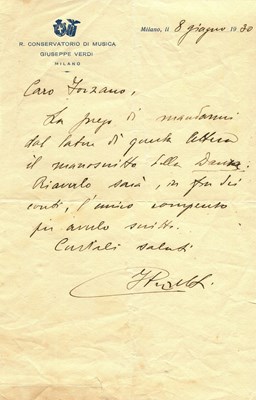 R. CONSERVATORIO DI MUSICA
GIUSEPPE VERDI
MILANO
Milano, li 8 giugno 1930
Caro Forzano,
La prego di mandarmi
dal latore di questa lettera
il manoscritto della Danza.
Riaverlo sarà, in fin dei
conti, l'unico compenso
per averlo scritto.
Cordiali saluti